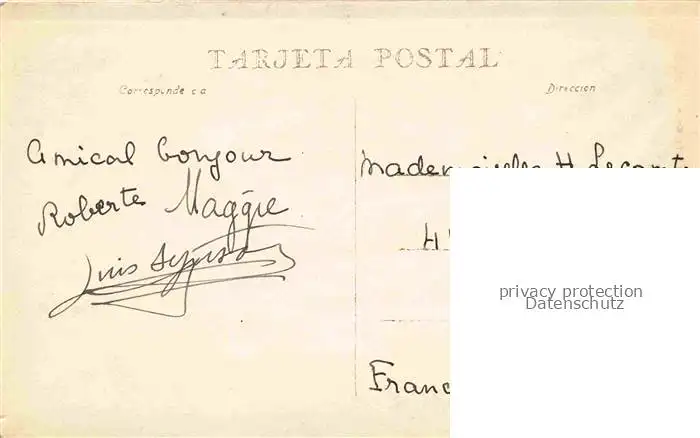 TARJETA POSTAL
Correspondencia
Direccion
Amical bonjour
Roberte Maggie
Luis
Mademoiselle H. Lecomte
H
Franc
privacy protection
Datenschutz